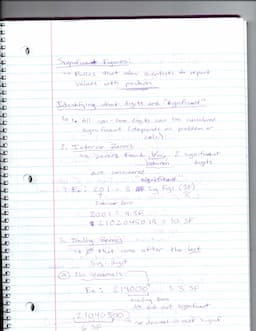 Significant Figures:
→ Rules that allow scientists to report
values with precision
Identifying what digits are "significant"
1. All non-zero digits can be considered
significant (depends on problem or
calc).
2. Interior Zeros
→ zeros found between 2 significant
digits
are considered
"significant"
Ex: 201 = 3 Sig Figs (SF)
Interior Zero
2001 = 4 SF
= 10 SF
3. Trailing Zeros
→ that come after the last
sig. digit
a) No Decimals
Ex: 214000 = 3 SF
trailing zeros
are not significant